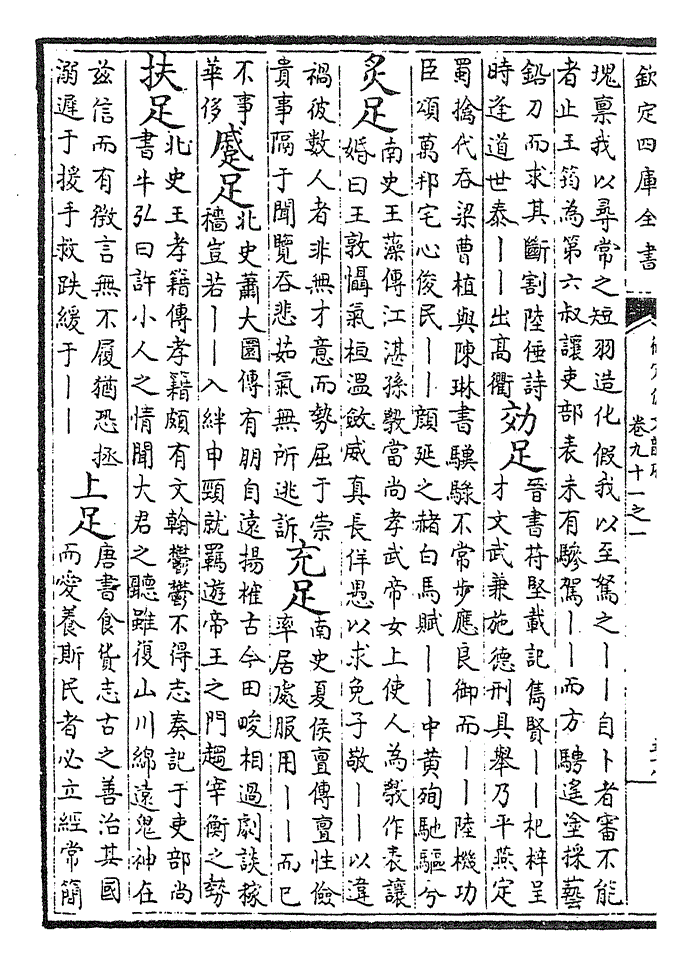 欽定四庫全書
卷九十一之一
瑰禀我以尋常之短羽造化假我以至駑之丨丨自卜者審不能
者止王筠為第六叔讓吏部表未有驂駕丨丨而方騁遙塗採藝
鉛刀而求其斷割陸倕詩
時逢道世泰丨丨出高衢
効足
晉書苻堅載記儁賢丨丨杞梓呈
才文武兼施德刑具舉乃平燕定
蜀擒代吞梁曹植與陳琳書驥騄不常步應良御而丨丨陸機功
臣頌萬邦宅心俊民丨丨顔延之赭白馬賦丨丨中黄殉馳驅兮
炙足
南史王藻傳江湛孫斆當尚孝武帝女上使人為斆作表讓
婚曰王敦懾氣桓溫斂威真長佯愚以求免子敬丨丨以違
禍彼數人者非無才意而勢屈于崇
貴事隔于聞覽吞悲茹氣無所逃訴
充足
南史夏侯亶傳亶性儉
率居處服用丨丨而已
不事
華侈
蹙足
北史蕭大圜傳有朋自遠揚搉古今田畯相過劇談稼
穡豈若丨丨入絆申頸就羈遊帝王之門趨宰衡之勢
扶足
北史王孝籍傳孝籍頗有文翰鬱鬱不得志奏記于吏部尚
書牛弘曰許小人之情聞大君之聽雖復山川綿遠鬼神在
兹信而有徵言無不履猶恐拯
溺遲于援手救跌緩于丨丨
上足
唐書食貨志古之善治其國
而愛養斯民者必立經常簡